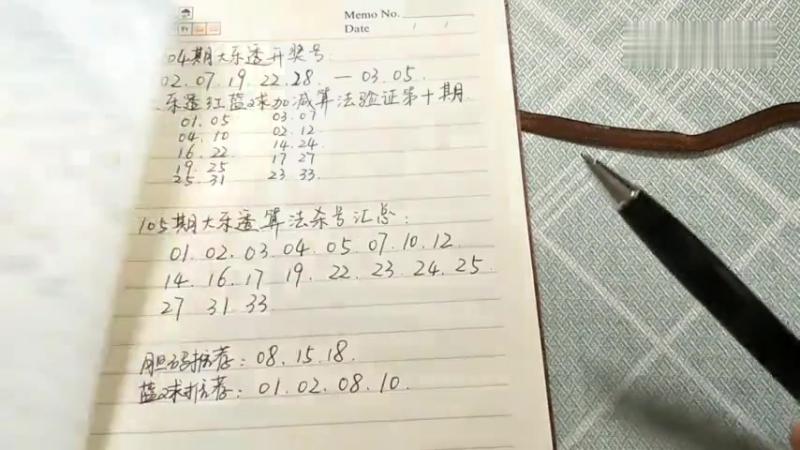 Memo No.
Date / /
04期大乐透开奖号
02.07.19.22.28.—03.05.
乐透红蓝球加减算法验证第十期
01.05 03.07
04.10 02.12
16.22 14.24
19.25 17 27
25.31 23 33.
105期大乐透算法杀号汇总:
01.02.03.04.05.07.10.12
14.16.17 19.22.23.24.25.
27 31 33
胆码推荐:08.15.18.
蓝球推荐:01.02.08.10.